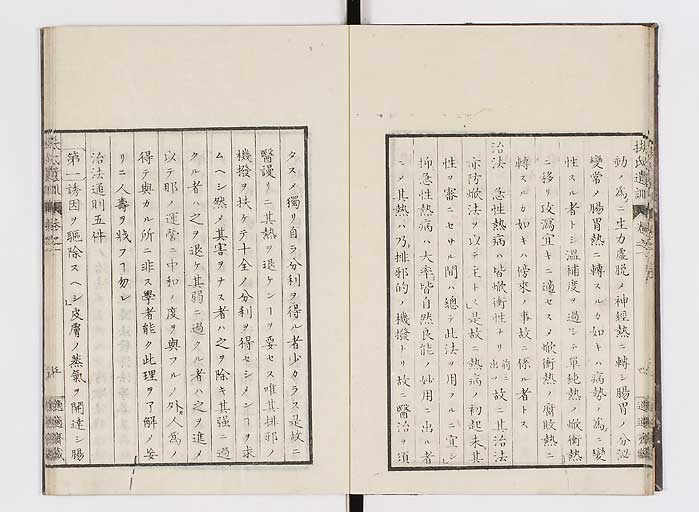 扶氏遺訓
動ノ為ニ生力虚脱ノ神経熱ニ轉シ腸胃ノ分泌
變常ノ腸胃熱ニ轉スルカ如キハ病勢ノ為ニ變
性スル者トシ温補度ヲ過シテ單純熱ノ焮衝熱
ニ移リ攻瀉宜キニ適セスメ焮衝熱ノ腐敗熱ニ
轉スルカ如キハ傍來ノ事故ニ係ル者トス
治法 急性熱病ハ皆焮衝性ナリ前ニ出ツ故ニ其治法
亦防焮法ヲ以テ主トス」是故ニ熱病ノ初起未其
性ヲ審ニセサル間ハ總テ此法ヲ用フルニ宜シ」
抑急性熱病ハ大率皆自然良能ノ妙用ニ出ル者
ニメ其熱ハ乃排邪的ノ機撥ナリ故ニ醫治ヲ須
タスメ獨リ自ラ分利ヲ得ル者少カラス是故ニ
醫謾リニ其熱ヲ退ケンヿヲ要セス唯其排邪ノ
機撥ヲ扶ケテ十全ノ分利ヲ得セシメンヿヲ求
ムヘシ然ノ其害ヲナス者ハ之ヲ除キ其強ニ過
クル者ハ之ヲ退ケ其弱ニ過クル者ハ之ヲ進メ
以テ那ノ運營ニ中和ノ度ヲ與フルノ外人為ノ
得テ與カル所ニ非ス學者能ク此理ヲ了解ノ妄
リニ人壽ヲ戕フヿ勿レ
治法通則五件
第一誘因ヲ驅除スヘシ」皮膚ノ蒸氣ヲ開達シ腸
扶氏遺訓 卷之一 五 適適齋藏